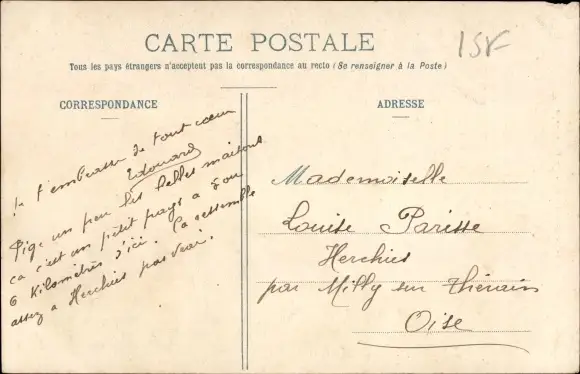 CARTE POSTALE
Tous les pays étrangers n'acceptent pas la correspondance au recto (Se renseigner à la Poste)
15F
CORRESPONDANCE
Je t'embrasse de tout cœur
Edouard
Pige un peu les belles maisons
ca c'est un petit pays a 5 ou
6 kilomètres d'ici. Ca ressemble
assez a Herchies pas vrai.
ADRESSE
Mademoiselle
Louise Parisse
Herchies
par Milly sur Thérain
Oise